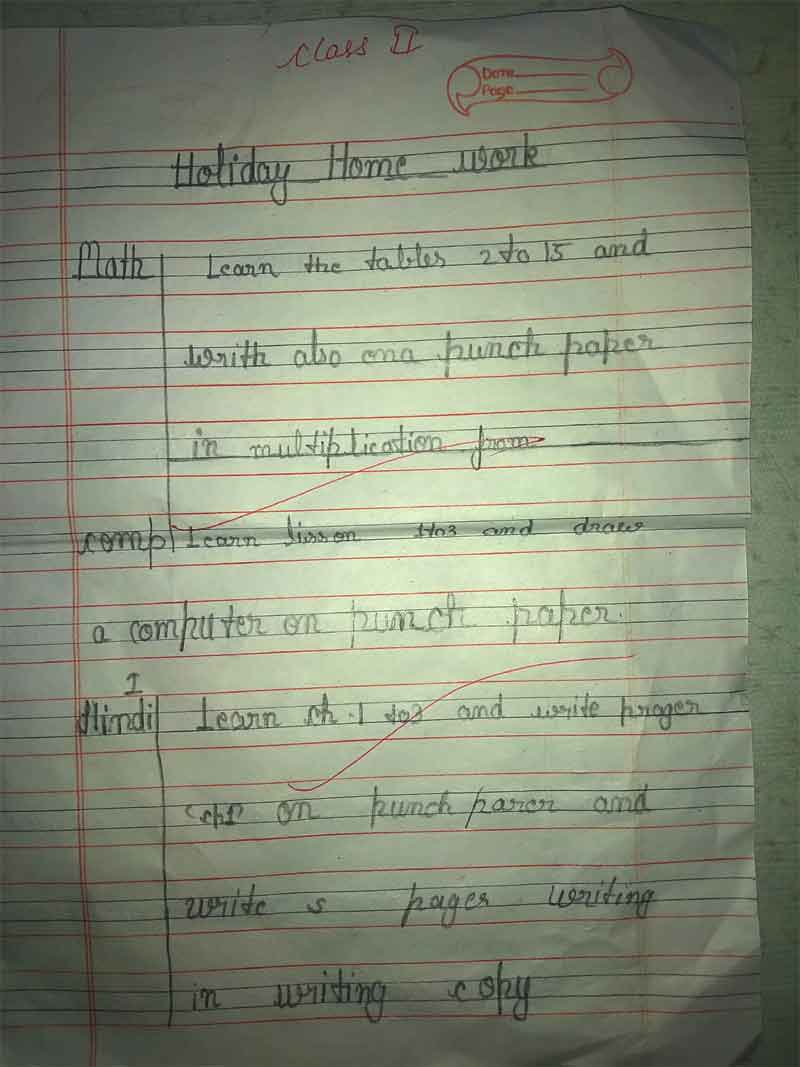 Class II
Date
Page
Holiday Home work
Math Learn the tables 2 to 15 and
writh also ona punch paper
in multiplication from
comp Learn lisson 1to3 and draw
a computer on punch paper.
I
Hindi Learn ch.1 to3 and write prager
(ch1) on punch parer and
write 5 pages writing
in writing copy